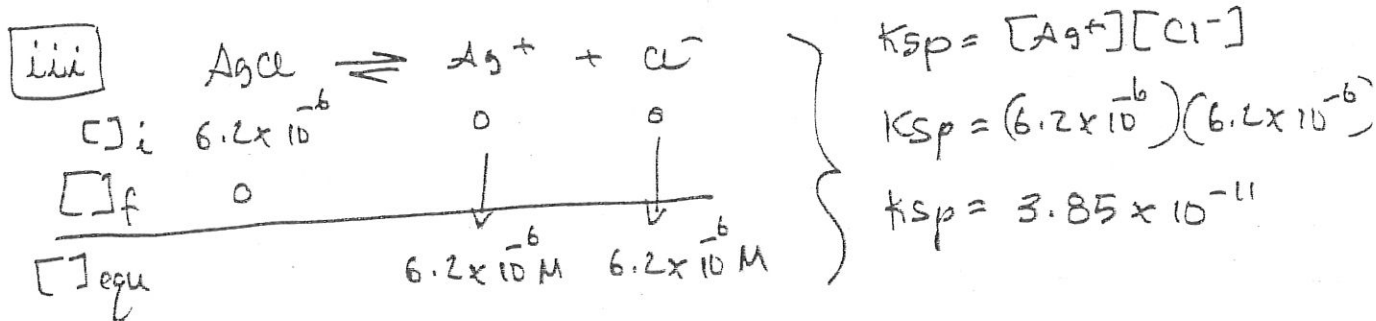 iii AgCl ⇌ Ag⁺ + Cl⁻
[ ]i 6.2 x 10⁻⁶ 0 0
[ ]f 0
[ ]equ 6.2 x 10⁻⁶ M 6.2 x 10⁻⁶ M
Ksp = [Ag⁺][Cl⁻]
Ksp = (6.2 x 10⁻⁶)(6.2 x 10⁻⁶)
Ksp = 3.85 x 10⁻¹¹